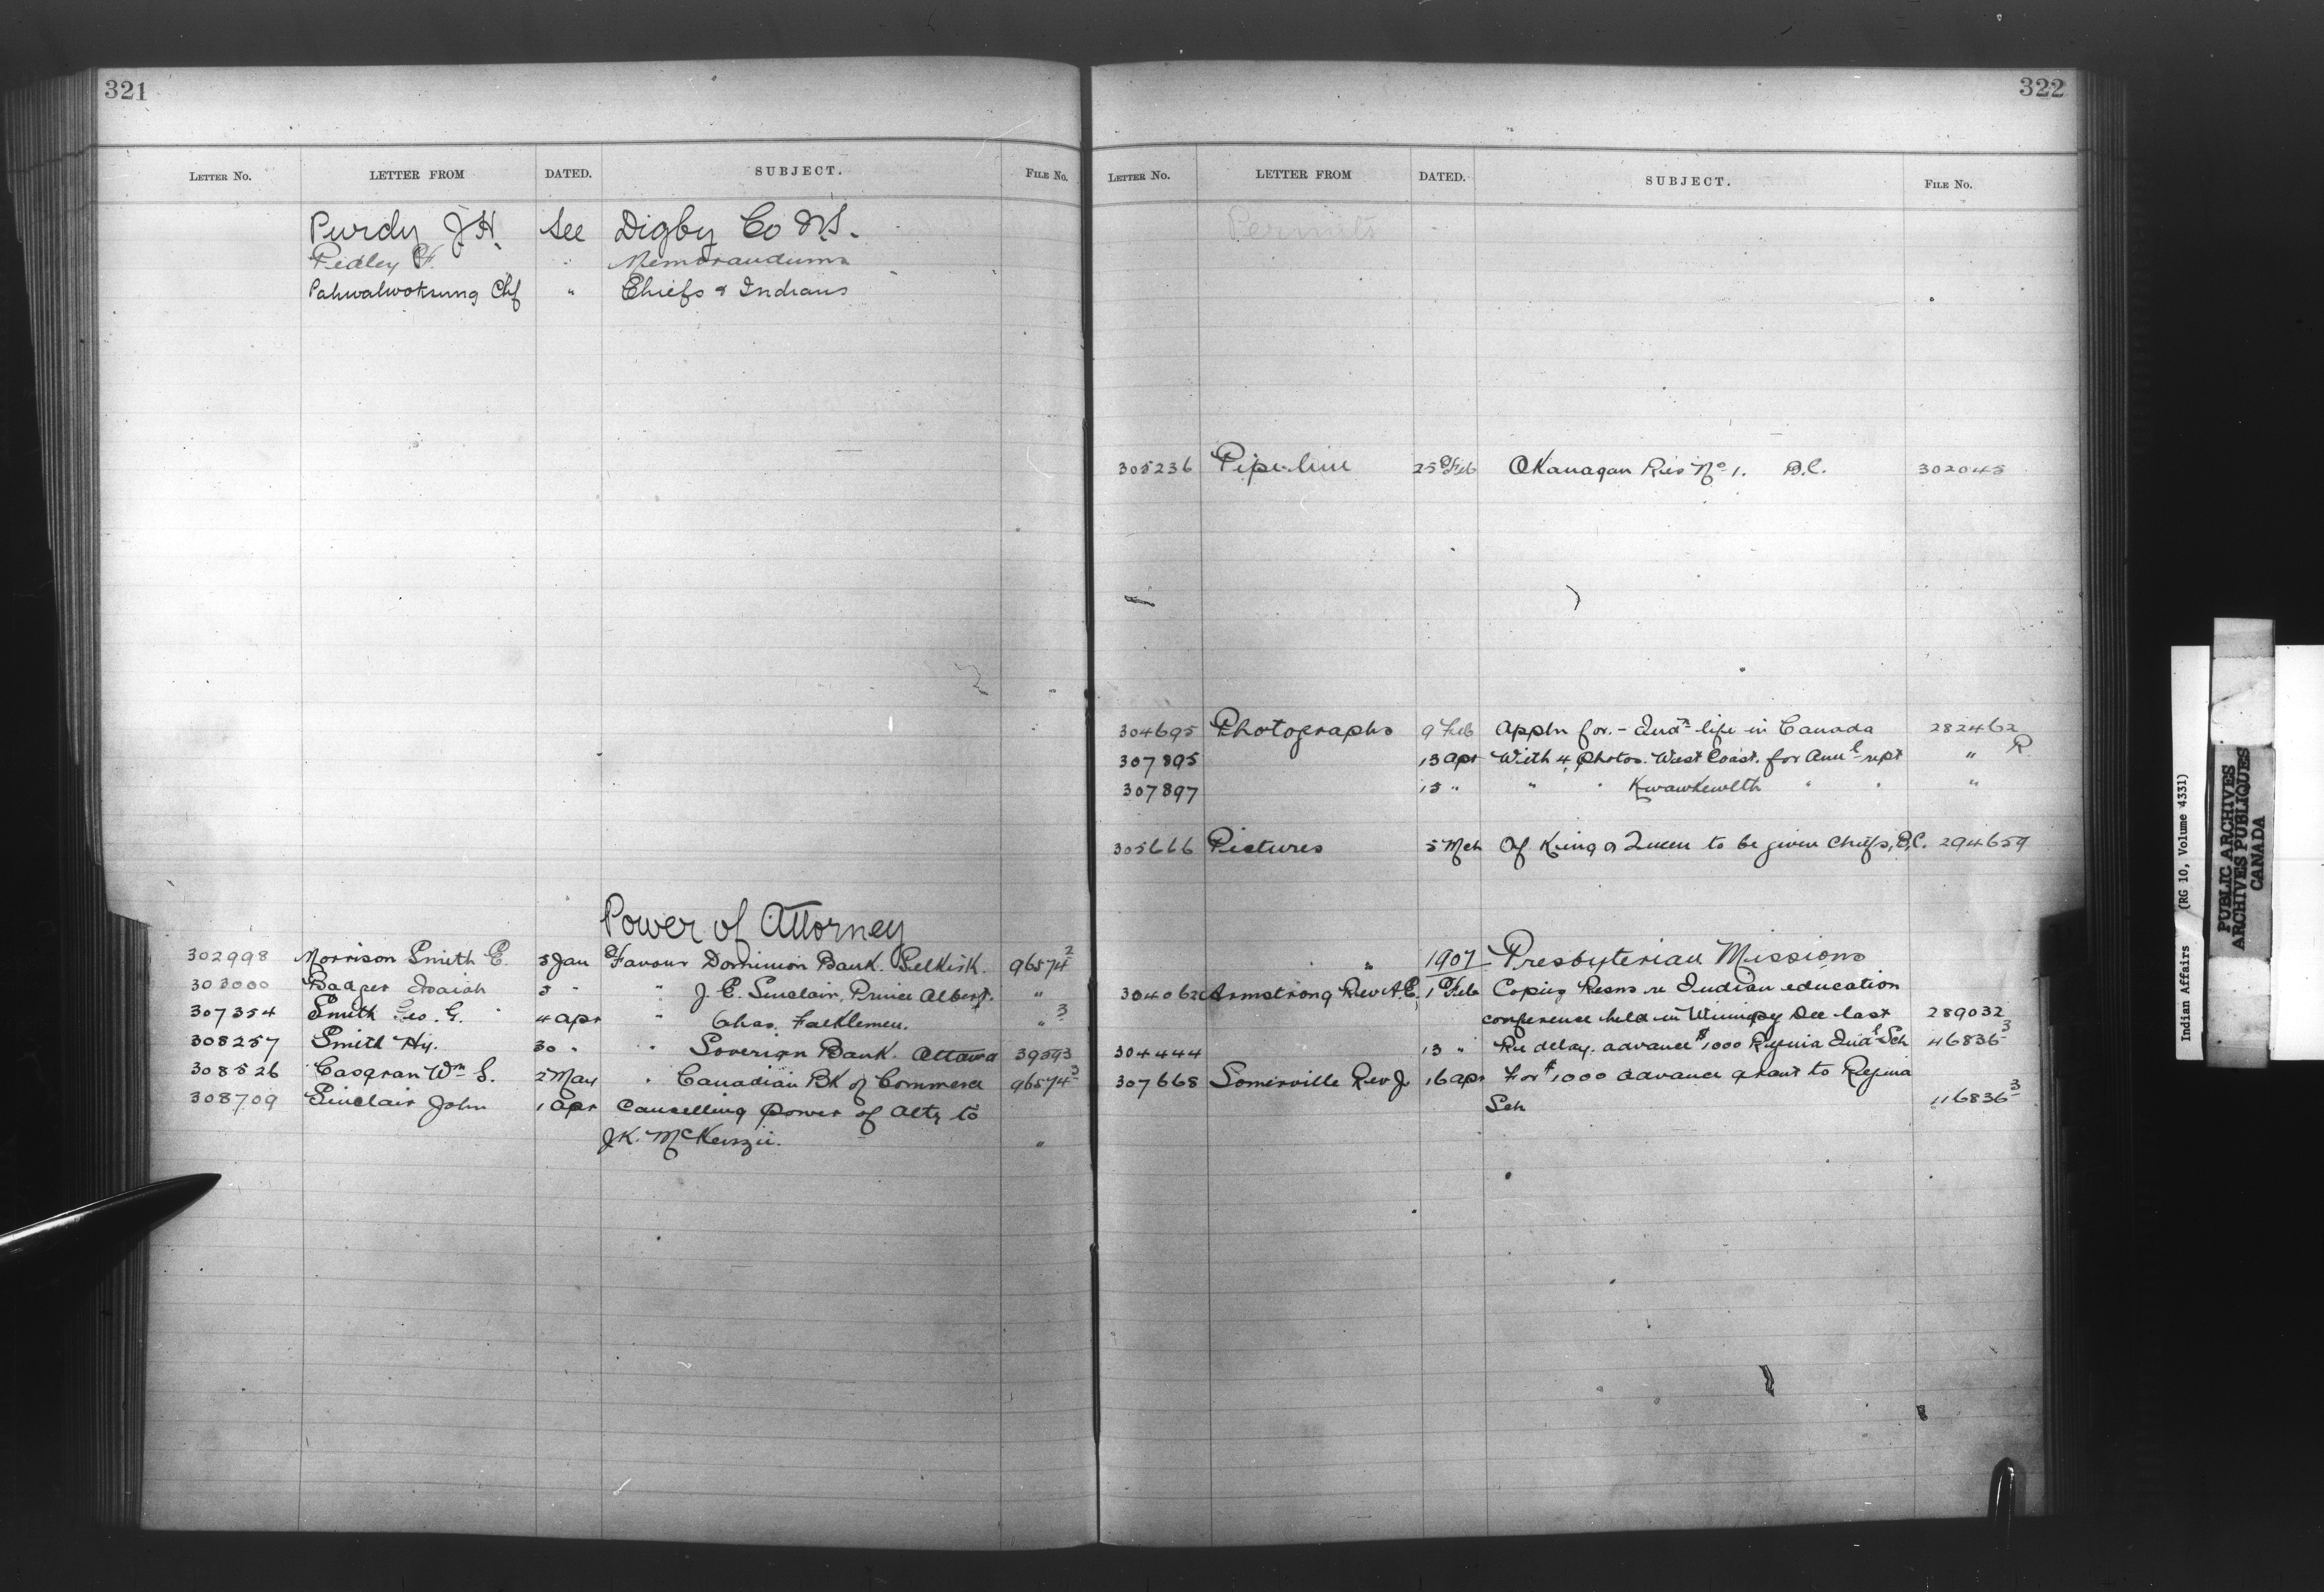 321
LETTER NO. LETTER FROM DATED. SUBJECT. FILE NO.
Purdy J.H. See Digby Co N.S.
Pedley F. " Memorandums
Chf " Chiefs & Indians
Power of Attorney
302998 Morrison Smith E. 5 Jan Favour Dominion Bank. Selkirk. 96574²
303000 Badger Isaiah 5 " " J. E. Sinclair, Prince Albert. "
307354 Smith Geo. G. 4 apr " Chas. "³
308257 Smith Hy. 30 " " Soverign Bank. Ottawa 39593
308526 Casgran Wm S. 2 May " Canadian BK of Commerce 96574³
308709 Sinclair John 1 apr Cancelling power of Atty to
J.K. McKenzie. "
322
LETTER NO. LETTER FROM DATED. SUBJECT. FILE NO.
Permits
305236 Pipe-line 25 Feb Okanagan Res No 1. B.C. 302045
304695 Photographs 9 Feb Appln for. - Indn life in Canada 282462
307895 13 apr With 4 photos. West Coast. for Annl rept " R
307897 15 " " " Kwawkewlth " " "
305666 Pictures 5 Mch Of King & Queen to be given Chiefs, B.C. 294659
" 1907 Presbyterian Missions
304062 Armstrong Rev A.E. 1 Feb Copies Resns re Indian education
conference held in Winnipeg Dec last 289032
304444 13 " Re delay. advance $1000 Regina Indl Sch 46836³
307668 Somerville Rev J. 16 apr For $1000 advance grant to Regina
Sch 116836³
Indian Affairs (RG 10, Volume 4331)
PUBLIC ARCHIVES
ARCHIVES PUBLIQUES
CANADA